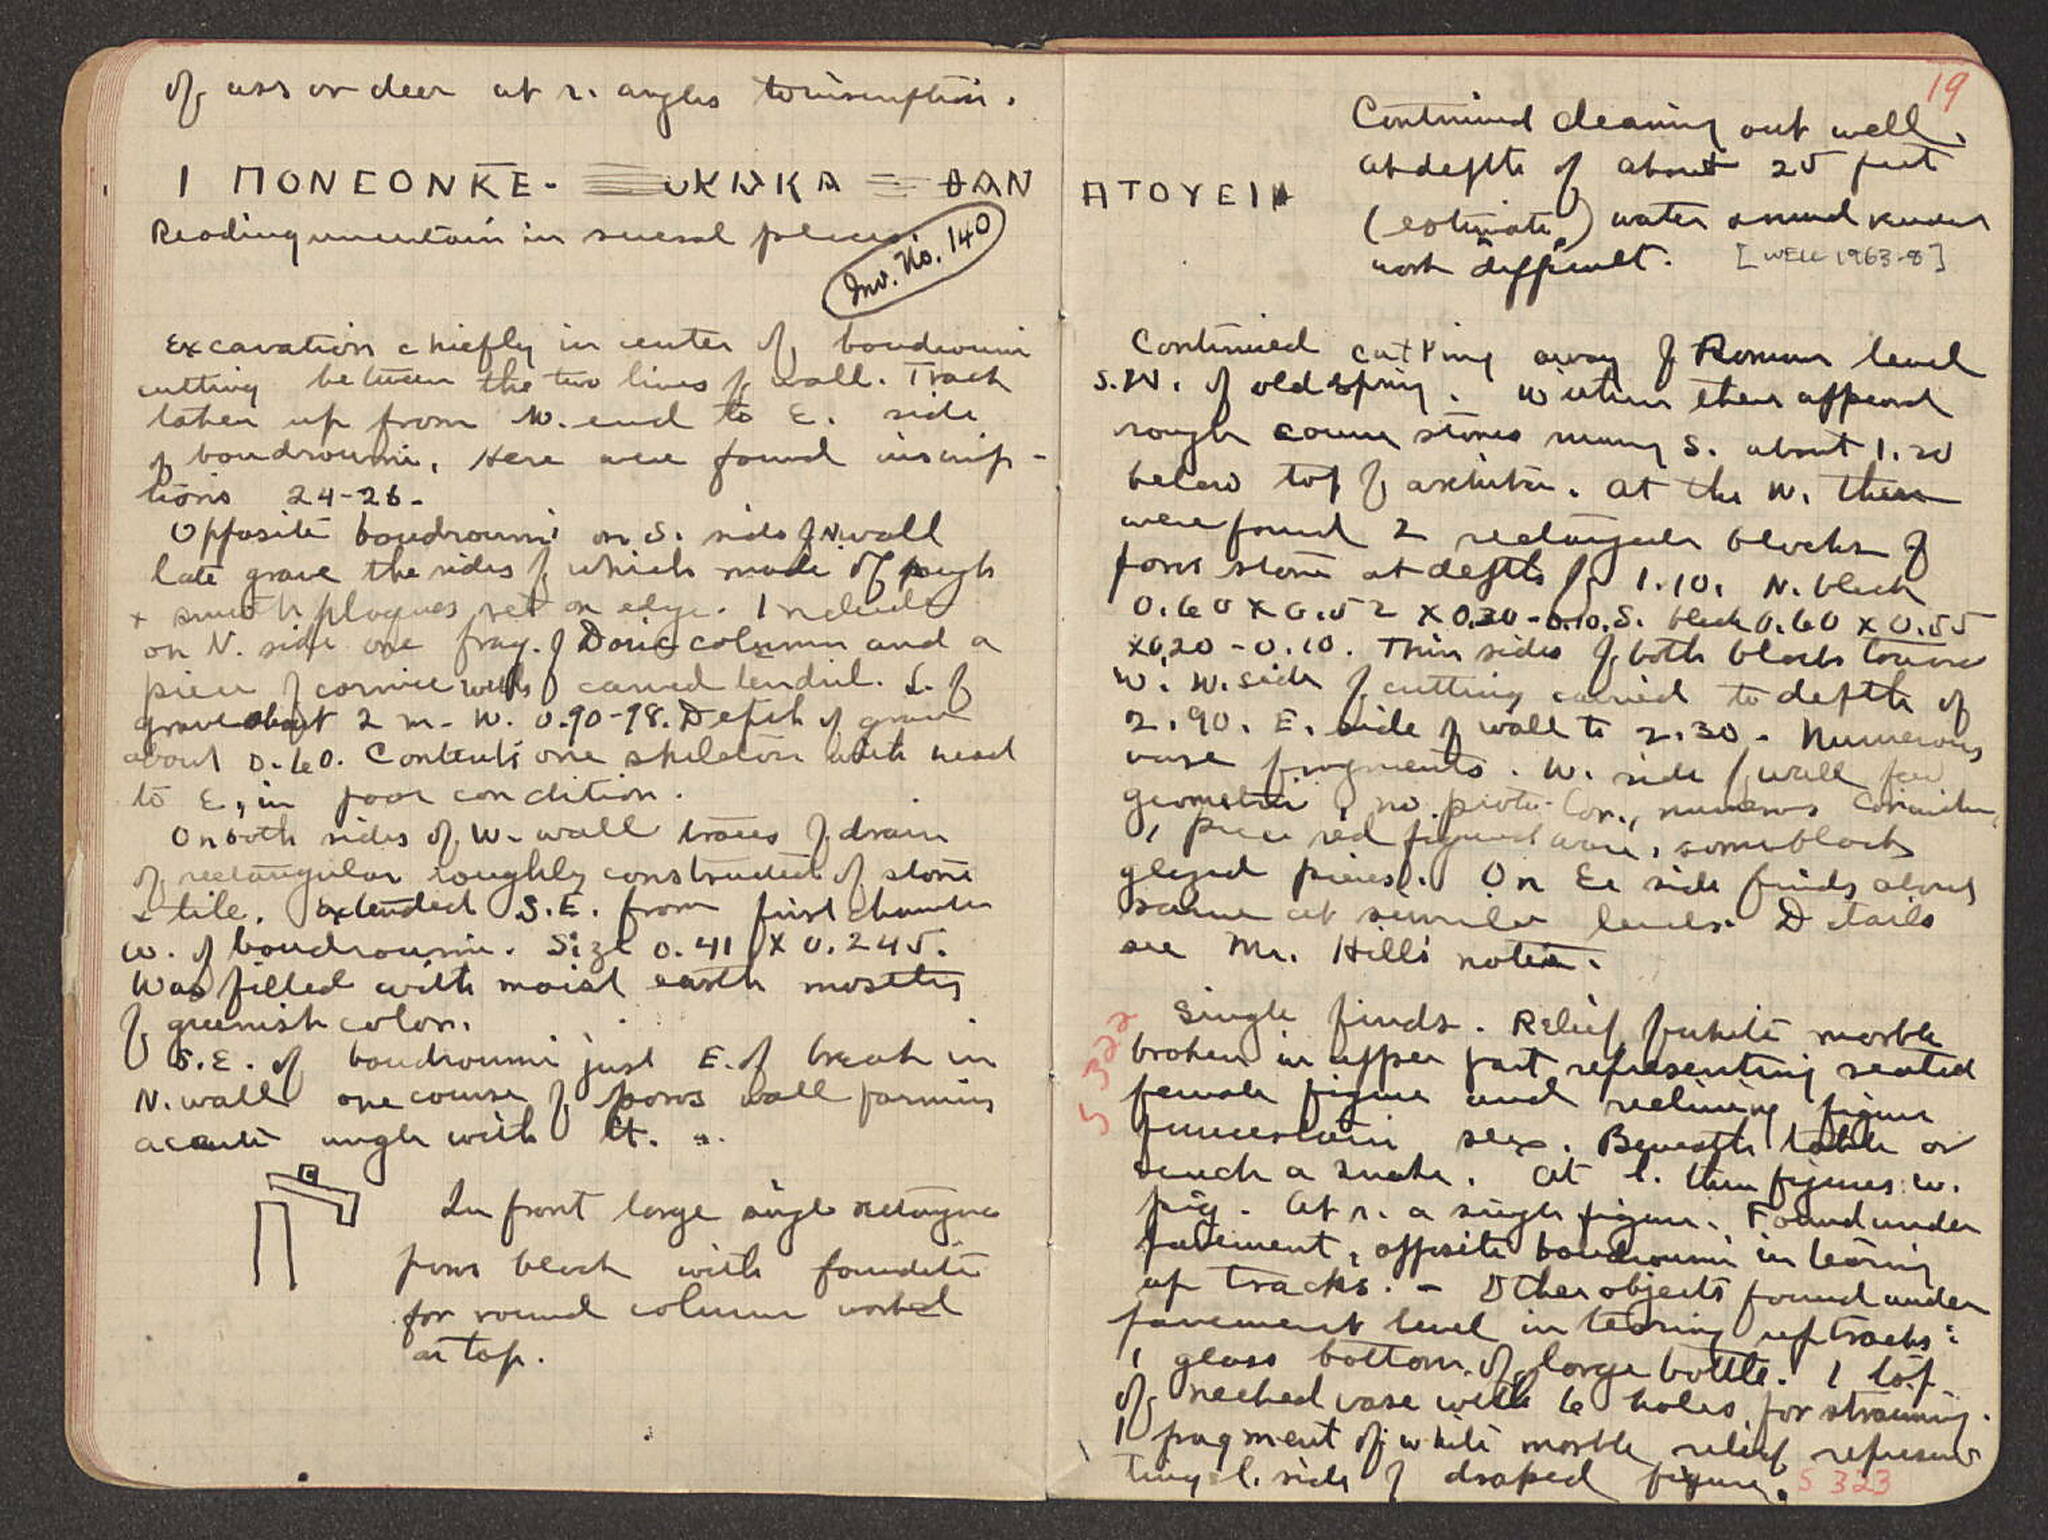 of ass or deer at r. angles to inscription.
I ΠΟΝΕΟΝΚΕ- ΚΑ ΘΑΝ
Reading uncertain in several places.
Inv. No. 140
Excavation chiefly in center of boudroumi
cutting between the two lines of wall. Track
taken up from W. end to E. side
of boudroumi. Here were found inscrip-
tions 24-26-
Opposite boudroumi on S. side of N. wall
late grave the sides of which made of rough
+ smooth plaques set on edge. Include
on N. side one frag. of Doric column and a
piece of cornice with carved tendril. L. of
grave about 2 m- W. 0.90-98. Depth of grave
about 0.60. Contents one skeleton with head
to E, in poor condition.
On both sides of W. wall traces of drain
of rectangular roughly constructed of stone
+ tile. Extended S.E. from first chamber
W. of boudroumi. Size 0.41 X 0.245.
Was filled with moist earth mostly
of greenish color.
S.E. of boudroumi just E. of break in
N. wall one course of poros wall forming
acute angle with it.
In front large single
poros block with
for round column worked
at top.
19
ΗΤΟΥΕΙ
Continued cleaning out well.
At depth of about 25 feet
(estimate) water around renders
work difficult.
[WELL 1963-8]
Continued cutting away of Roman level
S.W. of old spring. Within there appeared
rough course stones running S. about 1.20
below top of architr. At the W. there
were found 2 rectangular blocks of
poros stone at depth of 1.10. N. block
0.60 X 0.52 X 0.30-0.10, S. block 0.60 X 0.55
X 0.20-0.10. Thin sides of both blocks toward
W. W. side of cutting carried to depth of
2.90. E. side of wall to 2.30- Numerous
vase fragments. W. side of wall few
geometric, no proto-Cor., numerous Corinthian,
1 piece red figured ware, some black
glazed pieces. On E. side finds about
same at similar levels. Details
see Mr. Hill's notes.
S 322
Single finds. Relief of white marble
broken in upper part representing seated
female figure and reclining figure
of uncertain sex. Beneath table or
couch a snake. At l. three figures w.
pig. At r. a single figure. Found under
pavement, opposite boudroumi in tearing
up tracks. - Other objects found under
pavement level in tearing up tracks:
1 glass bottom of large bottle. 1 top
of necked vase with 6 holes for straining.
1 fragment of white marble relief represen-
ting l. side of draped figure.
S 323